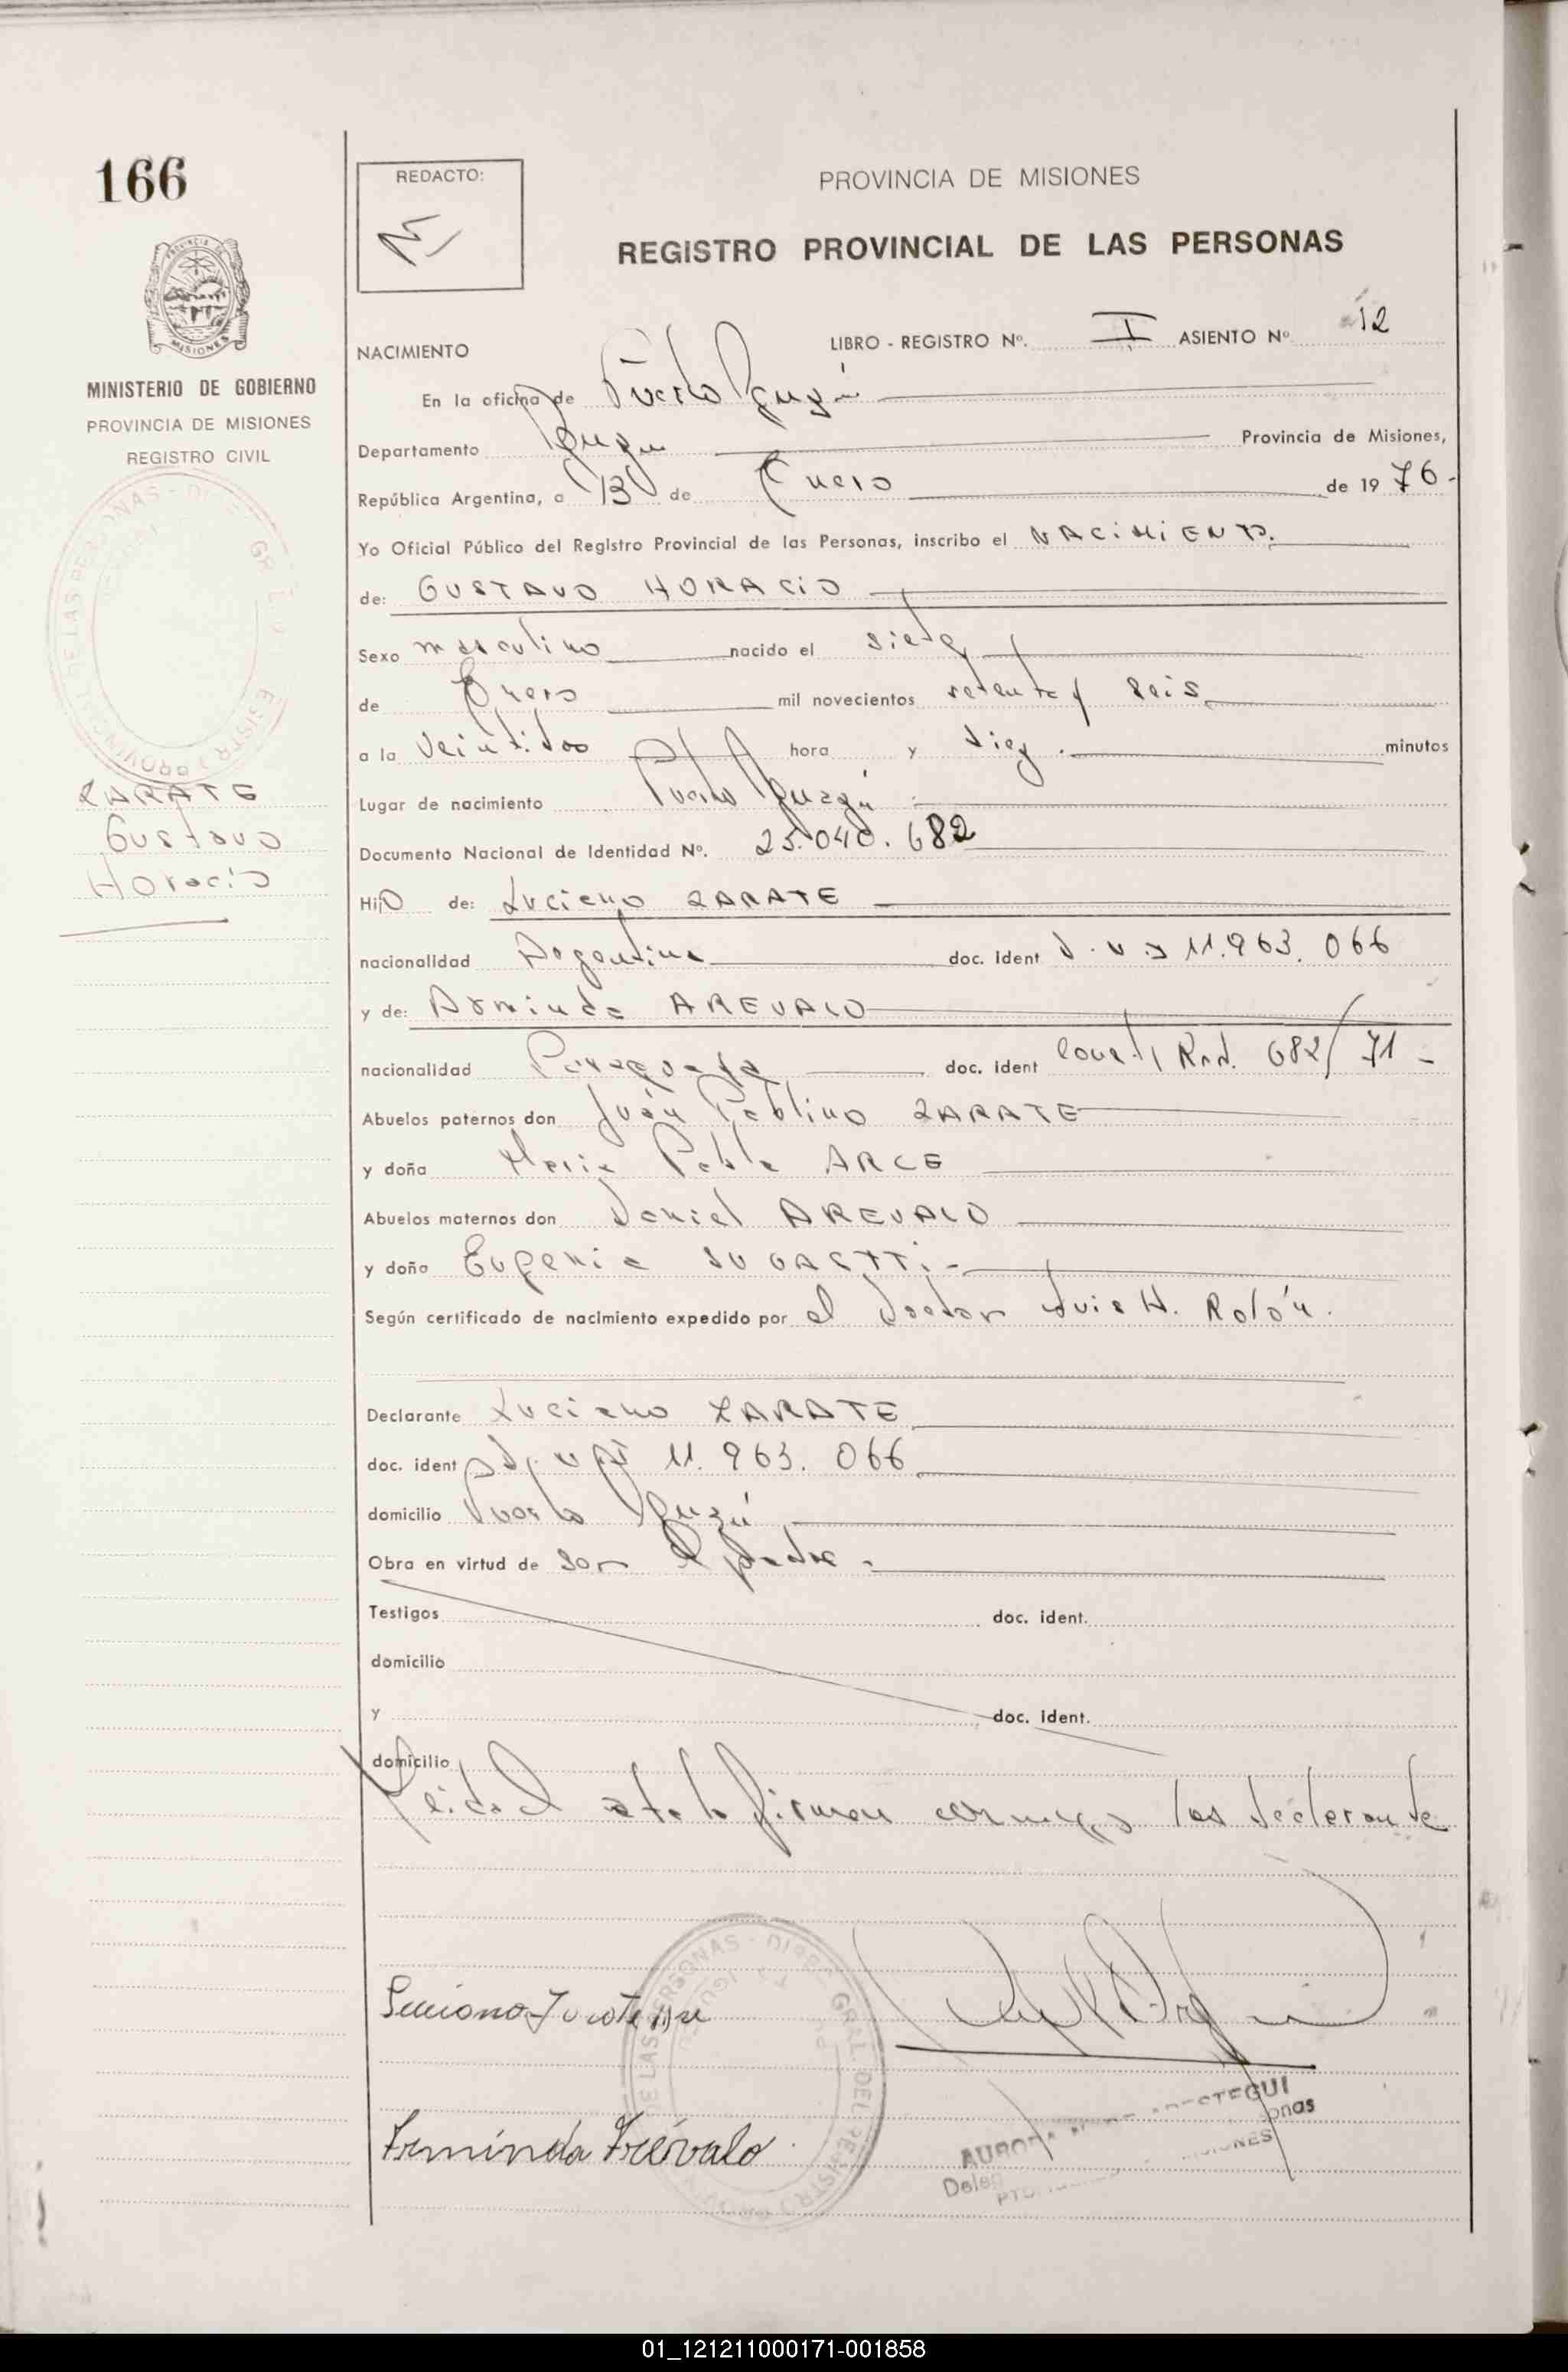 166
REDACTO:
PROVINCIA DE MISIONES
REGISTRO PROVINCIAL DE LAS PERSONAS
MISIONES
MINISTERIO DE GOBIERNO
PROVINCIA DE MISIONES
REGISTRO CIVIL
ZARATE
Gustavo
Horacio
NACIMIENTO LIBRO - REGISTRO Nº. I ASIENTO Nº 12
En la oficina de Puerto Iguazú
Departamento Iguazú Provincia de Misiones,
República Argentina, a 13 de Enero de 1976.
Yo Oficial Público del Registro Provincial de las Personas, inscribo el NACIMIENTO.
de: GUSTAVO HORACIO
Sexo masculino nacido el siete
de Enero mil novecientos setenta y seis
a la veintidos hora y diez minutos
Lugar de nacimiento Puerto Iguazú
Documento Nacional de Identidad Nº. 25.040.682
Hijo de: Luciano ZARATE
nacionalidad Argentina doc. Ident D.N.I 11.963.066
y de: Arminda AREVALO
nacionalidad Paraguaya doc. ident Const. Rad. 682/71-
Abuelos paternos don Juán Pablino ZARATE
y doña Maria Pabla ARCE
Abuelos maternos don Daniel AREVALO
y doña Eugenia
Según certificado de nacimiento expedido por el doctor Luis H. Rolón.
Declarante Luciano ZARATE
doc. ident D.N.I 11.963.066
domicilio Puerto Iguazú
Obra en virtud de ser el padre.
Testigos doc. ident.
domicilio
y doc. ident.
domicilio
Leida el acta la firman conmigo los declarante
Luciano Zarate
Arminda Arévalo
DE LAS PERSONAS - DIREC. GRAL. DEL REGISTRO
01_121211000171-001858